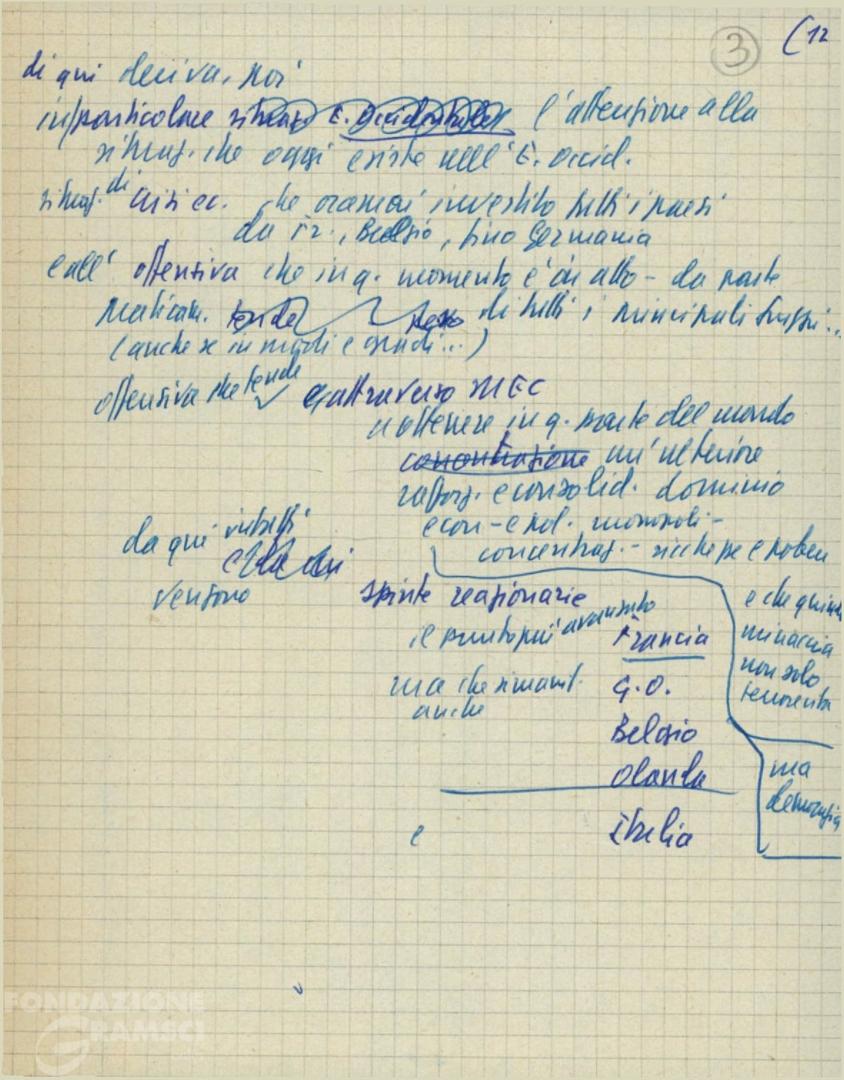 3 (12
di qui deriva, poi
in particolare situaz. E. Occidentale l'attenzione alla
situaz. che oggi esiste nell'E. Occid.
situaz. di crisi ec. che oramai investito tutti i paesi
da Fr., Belgio, fino Germania
e all' offensiva che in q. momento è in atto - da parte
praticam. tende di tutti i principali gruppi...
(anche se in modi e gradi...)
offensiva che tende e attraverso MEC
a ottenere in q. parte del mondo
concentrazione un' ulteriore
rafforz. e consolid. dominio
econ - e pol. monopoli -
concentraz. - ricchezze e potere
da qui
vengono spinte reazionarie
il punto più avanzato Francia
ma che
anche G.O.
Belgio
Olanda
e Italia
e che quindi
minaccia
non solo
ma
democrazia
FONDAZIONE
GRAMSCI